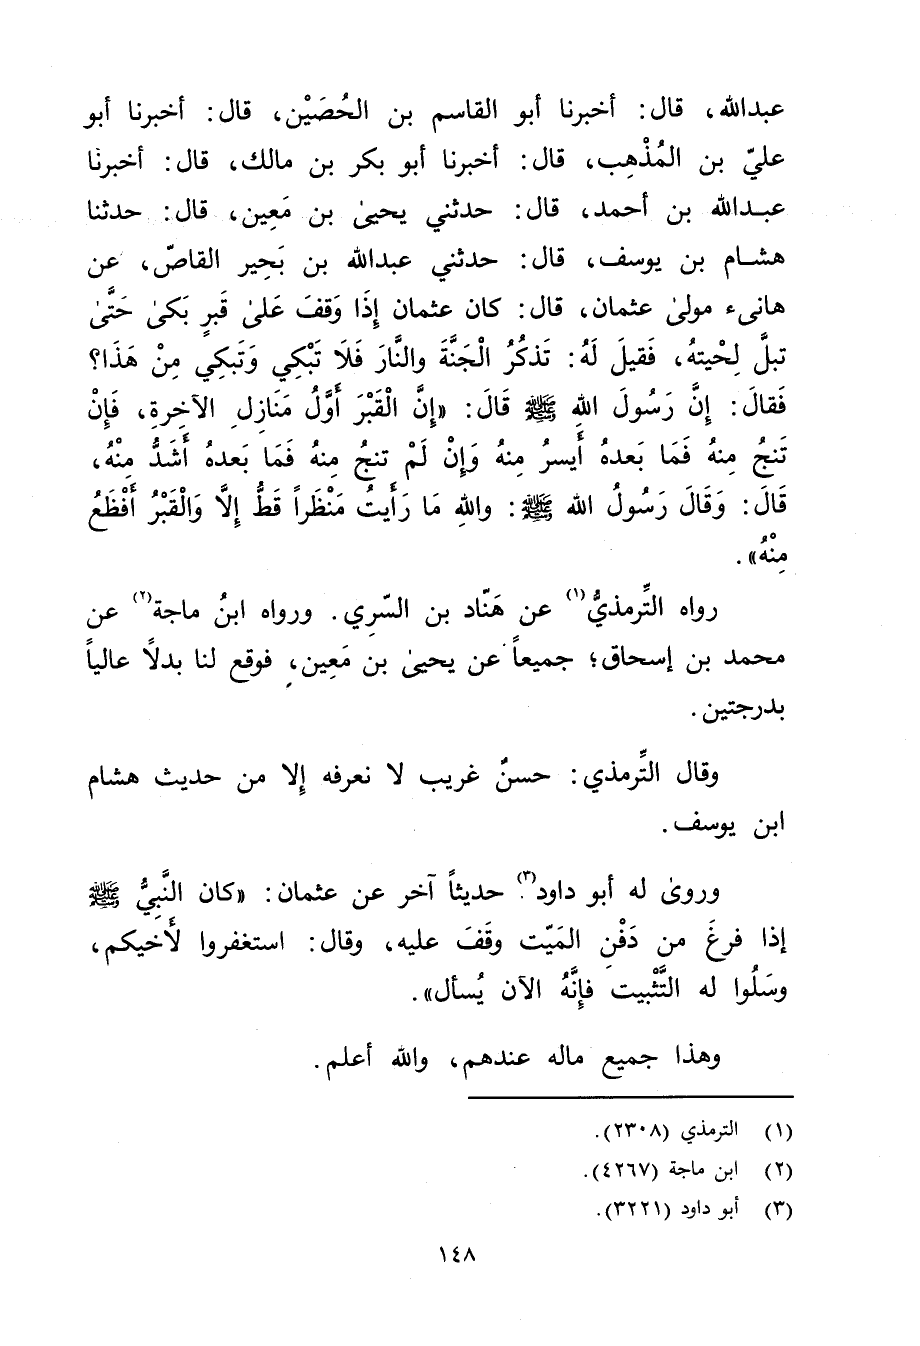 عبدالله، قال: أخبرنا أبو القاسم بن الحُصَيْن، قال: أخبرنا أبو
عليّ بن المُذْهِب، قال: أخبرنا أبو بكر بن مالك، قال: أخبرنا
عبدالله بن أحمد، قال: حدثني يحيىٰ بن مَعِين، قال: حدثنا
هشام بن يوسف، قال: حدثني عبدالله بن بَحِير القاصّ، عن
هانىء مولىٰ عثمان، قال: كان عثمان إِذَا وَقفَ عَلىٰ قَبرٍ بَكىٰ حَتَّىٰ
تبلَّ لِحْيتهُ، فَقيلَ لَهُ: تَذكُرُ الْجَنَّةَ والنَّارَ فَلَا تَبْكِي وَتَبكِي مِنْ هَذَا؟
فَقالَ: إِنَّ رَسُولَ اللهِ ﷺ قَالَ: «إِنَّ الْقَبْرَ أَوَّلُ مَنَازِلِ الآخِرةِ، فَإِنْ
تَنجُ مِنهُ فَمَا بَعدهُ أَيسرُ مِنهُ وَإِنْ لَمْ تنجُ مِنهُ فَمَا بَعدهُ أَشَدُّ مِنْهُ،
قَالَ: وَقَالَ رَسُولُ الله ﷺ: واللهِ مَا رَأَيتُ مَنْظَراً قَطُّ إِلَّا وَالْقَبْرُ أَفْظَعُ
مِنْهُ».
رواه التِّرمذيُّ(١) عن هَنّاد بن السّرِي. ورواه ابنُ ماجة(٢) عن
محمد بن إسحاق؛ جميعاً عن يحيىٰ بن مَعِين، فوقع لنا بدلاً عالياً
بدرجتين.
وقال التِّرمذي: حسنٌ غريب لا نعرفه إِلا من حديث هشام
ابن يوسف.
وروىٰ له أبو داود(٣) حديثاً آخر عن عثمان: «كان النَّبِيُّ ﷺ
إذا فرغَ من دَفْنِ المَيّت وقَفَ عليه، وقال: استغفروا لأَخيكم،
وسَلُوا له التَّثْبيت فإِنَّهُ الآن يُسأل».
وهذا جميع ماله عندهم، والله أعلم.
(١) الترمذي (٢٣٠٨).
(٢) ابن ماجة (٤٢٦٧).
(٣) أبو داود (٣٢٢١).
١٤٨